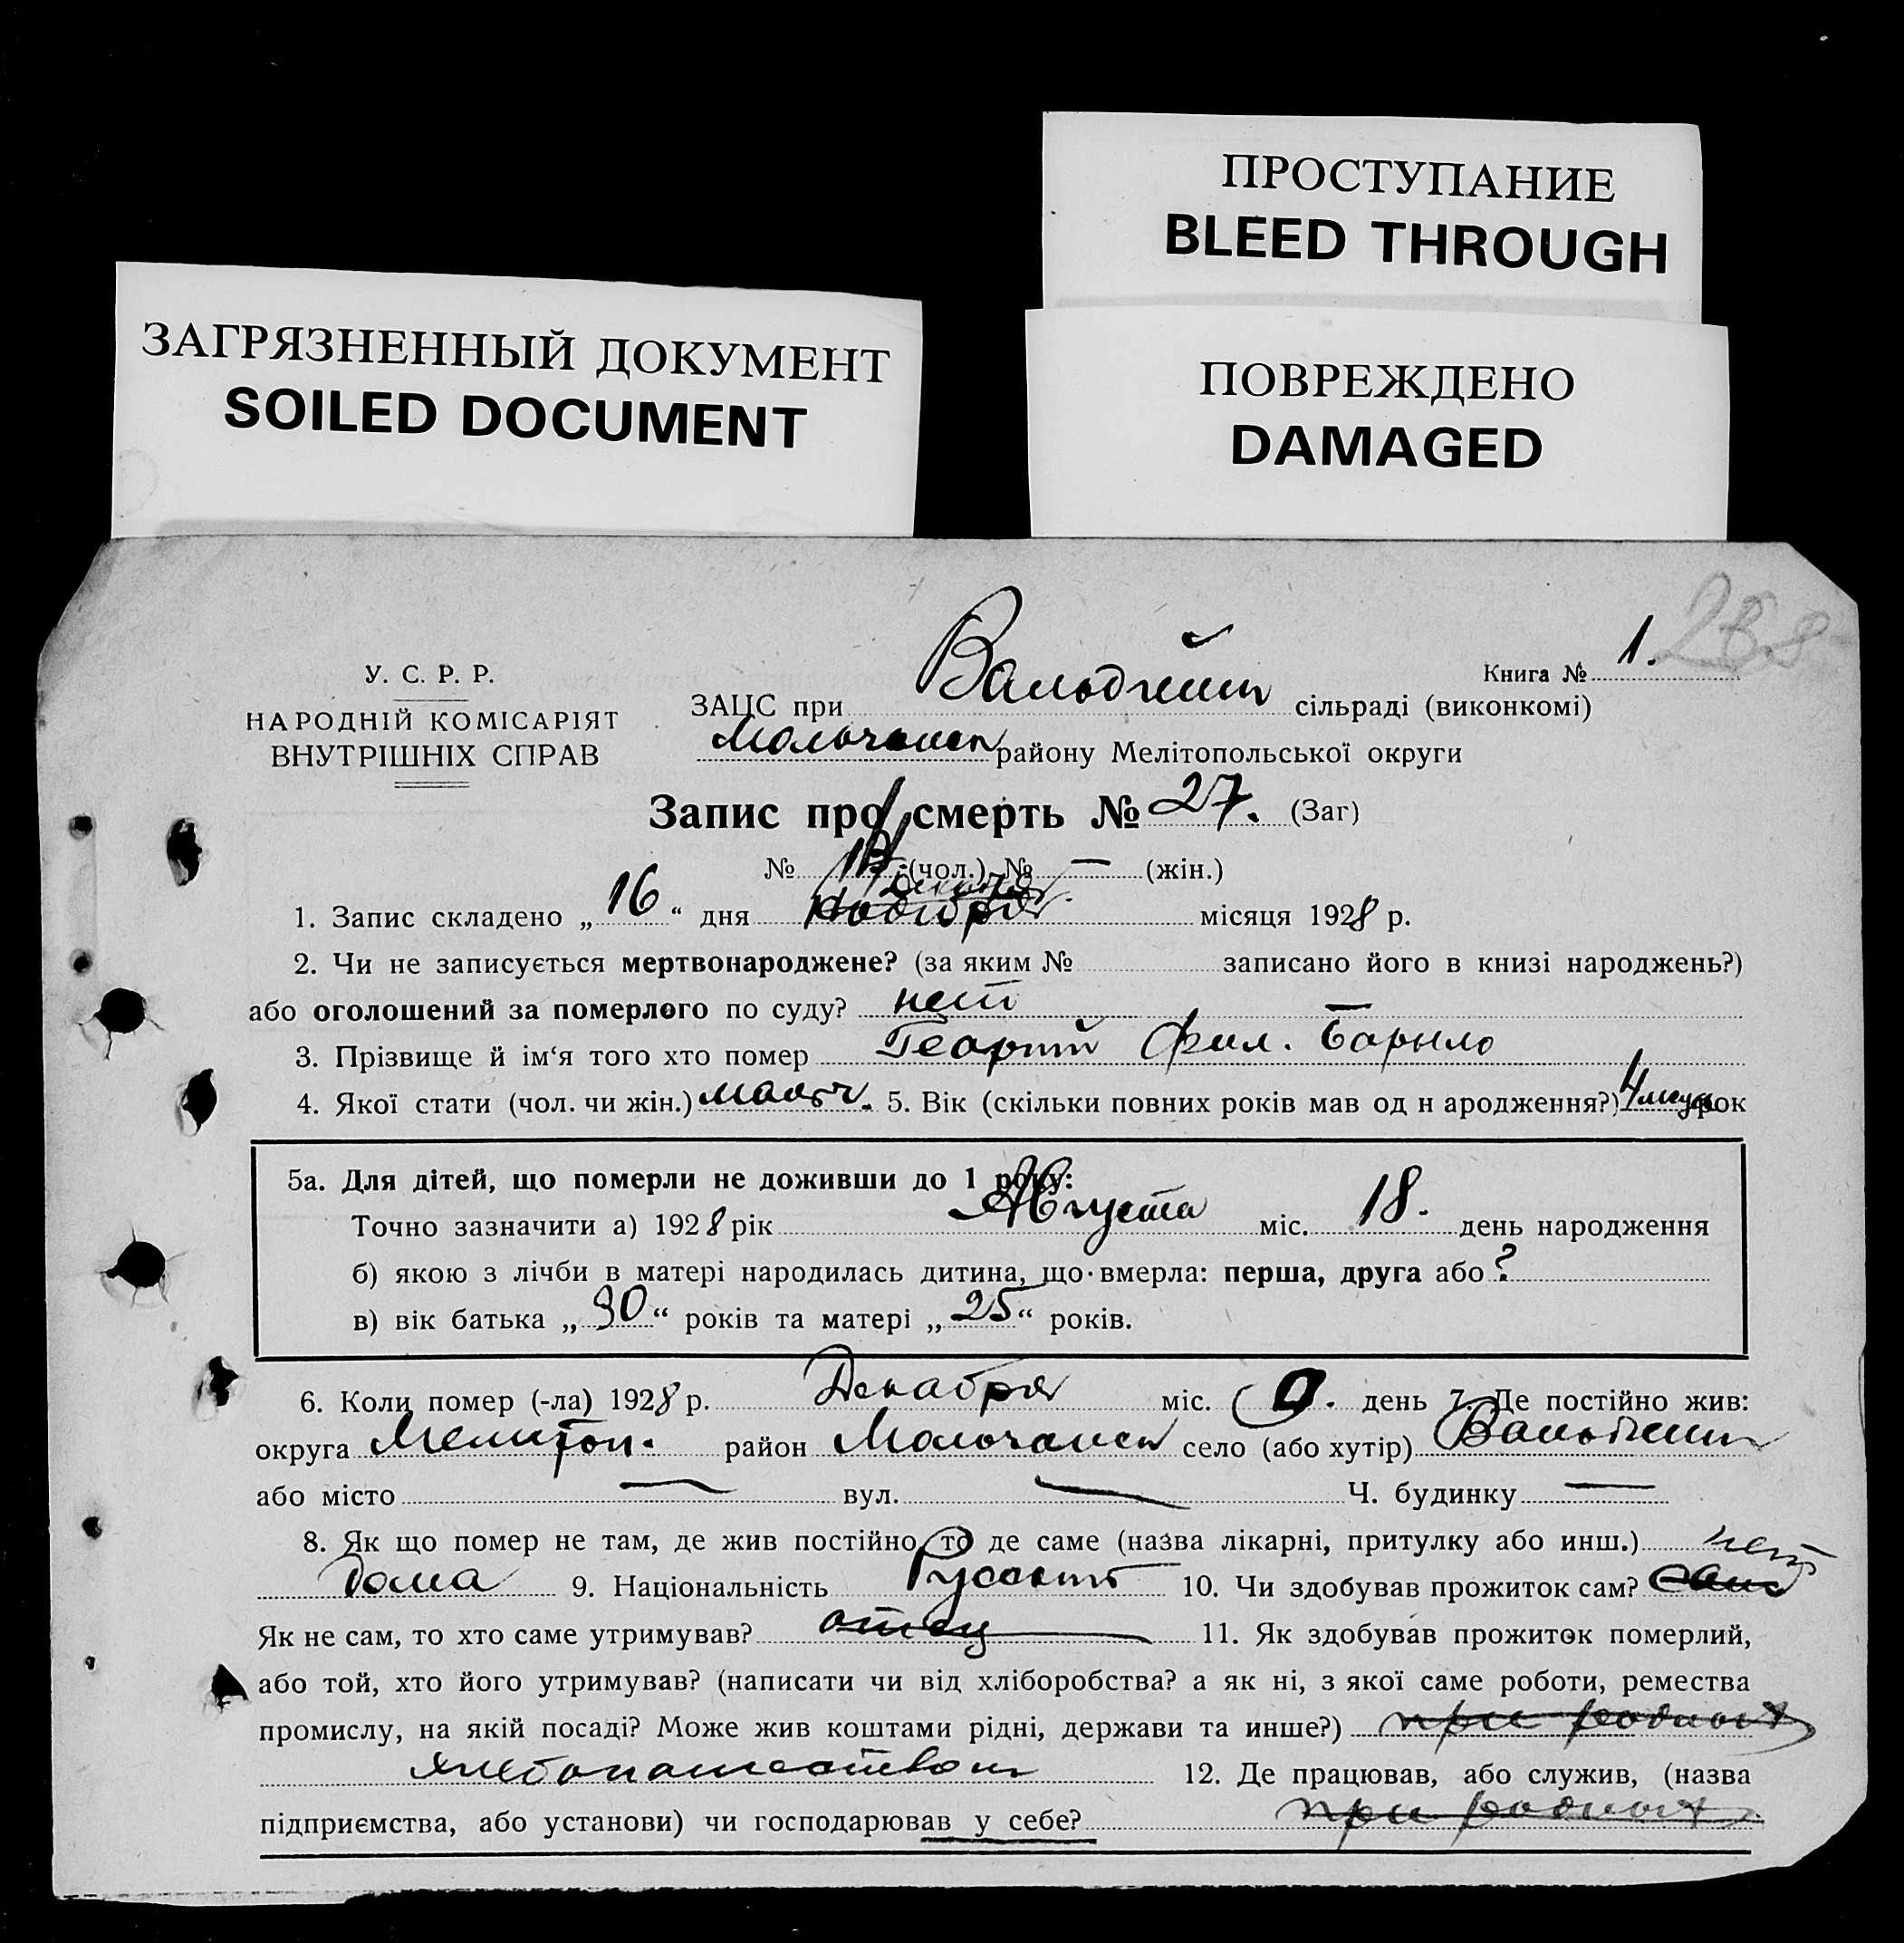 ПРОСТУПАНИЕ
BLEED THROUGH
ЗАГРЯЗНЕННЫЙ ДОКУМЕНТ
SOILED DOCUMENT
ПОВРЕЖДЕНО
DAMAGED
Книга № 1.
У. С. Р. Р.
НАРОДНІЙ КОМІСАРІЯТ
ВНУТРІШНІХ СПРАВ
ЗАЦС при Вальдгейм сільраді (виконкомі)
Молочанск району Мелітопольської округи
Запис про смерть № 27. (Заг)
№ (чол.) № — (жін.)
Декабря
1. Запис складено „16“ дня Ноября місяця 1928 р.
2. Чи не записується мертвонароджене? (за яким № записано його в книзі народжень?)
або оголошений за померлого по суду? нет —
3. Прізвище й ім‘я того хто помер Георгий Фил. Барыло
4. Якої стати (чол. чи жін.) мальч. 5. Вік (скільки повних років мав од н ародження?) 4 рок
5а. Для дітей, що померли не доживши до 1 року:
Точно зазначити а) 1928 рік Августа міс. 18. день народження
б) якою з лічби в матері народилась дитина, що вмерла: перша, друга або ?
в) вік батька „30“ років та матері „25“ років.
6. Коли помер (-ла) 1928 р. Декабря міс. день 7. Де постійно жив:
округа Мелитоп. район Молочанск село (або хутір) Вальдгейм
або місто — вул. — Ч. будинку —
8. Як що помер не там, де жив постійно, то де саме (назва лікарні, притулку або инш.) нет
Дома 9. Національність Русский 10. Чи здобував прожиток сам?
Як не сам, то хто саме утримував? отец 11. Як здобував прожиток померлий,
або той, хто його утримував? (написати чи від хліборобства? а як ні, з якої саме роботи, ремества
промислу, на якій посаді? Може жив коштами рідні, держави та инше?) при родных
хлебопашеством 12. Де працював, або служив, (назва
підприємства, або установи) чи господарював у себе? при родных